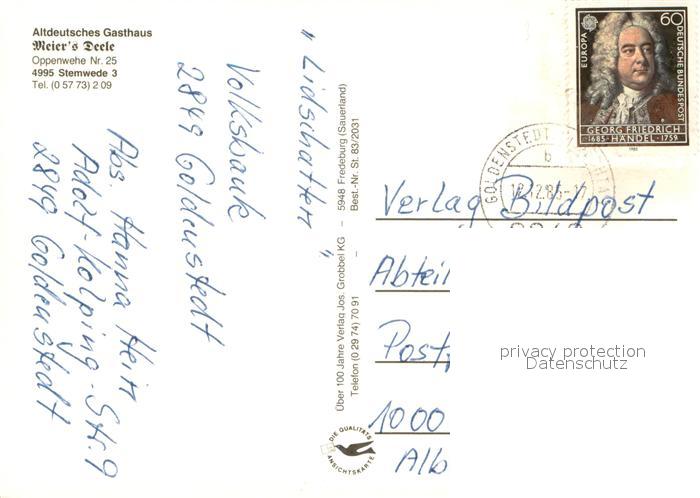 Altdeutsches Gasthaus
Meier's Deele
Oppenwehe Nr. 25
4995 Stemwede 3
Tel. (0 57 73) 2 09
"Lidschatten"
Volksbank
2849 Goldenstedt
Abs. Hanna
Adolf-Kolping-Str. 9
2849 Goldenstedt
Über 100 Jahre Verlag Jos. Grobbel KG – 5948 Fredeburg (Sauerland)
Telefon (0 29 74) 70 91 – Best.-Nr. St. 83/2031
DIE QUALITÄTS
ANSICHTSKARTE
EUROPA
60
DEUTSCHE BUNDESPOST
GEORG FRIEDRICH
1685 · HÄNDEL · 1759
1985
GOLDENSTEDT
b
Verlag Bildpost
Abteil
Post
1000
Alb
privacy protection
Datenschutz